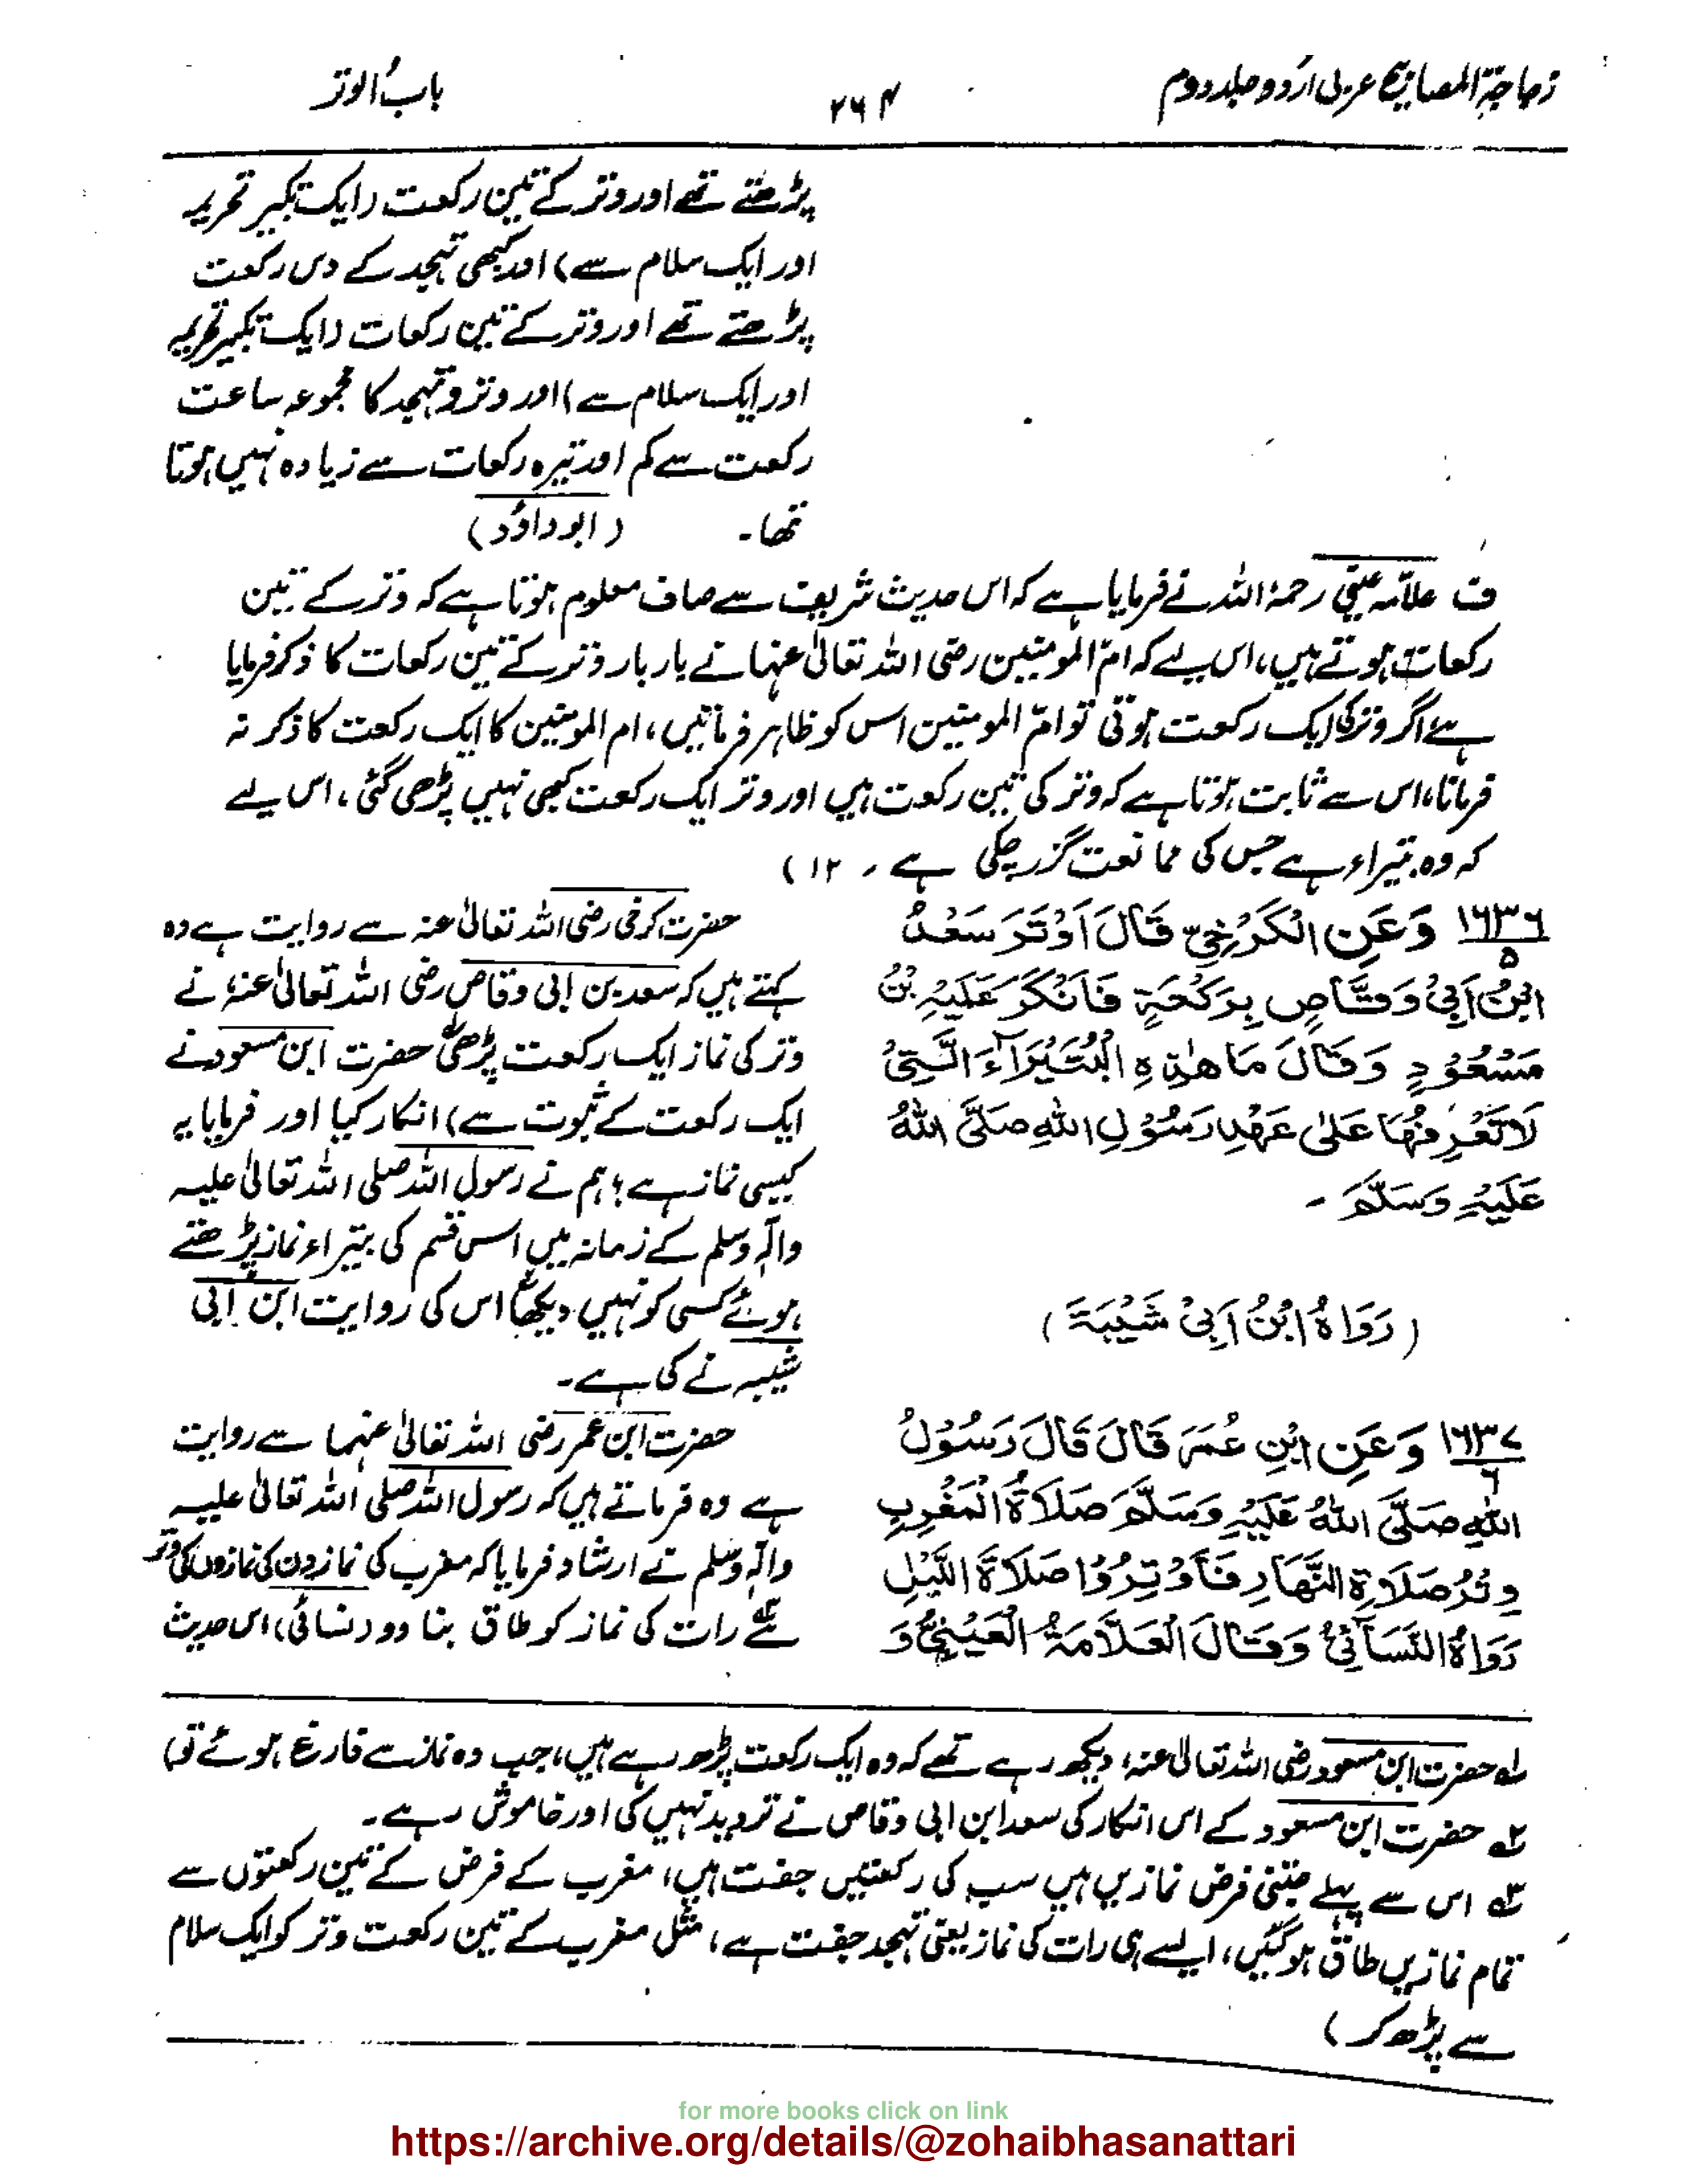 زجاجۃ المصابیح عربی اردو جلد دوم
۲۶۴
باب الوتر
پڑھتے تھے اور وتر کے تین رکعت (ایک تکبیر تحریمہ
اور ایک سلام سے) اور کبھی تہجد کے دس رکعت
پڑھتے تھے اور وتر کے تین رکعات (ایک تکبیر تحریمہ
اور ایک سلام سے) اور وتر و تہجد کا مجموعہ ساعت
رکعت سے کم اور تیرہ رکعات سے زیادہ نہیں ہوتا
تھا۔ (ابوداؤد)
ف علامہ عینی رحمۃ اللہ نے فرمایا ہے کہ اس حدیث شریف سے صاف معلوم ہوتا ہے کہ وتر کے تین
رکعات ہوتے ہیں، اس لیے کہ ام المومنین رضی اللہ تعالیٰ عنہا نے بار بار وتر کے تین رکعات کا ذکر فرمایا
ہے اگر وتر کی ایک رکعت ہوتی تو ام المومنین اس کو ظاہر فرماتیں، ام المومنین کا ایک رکعت کا ذکر نہ
فرمانا، اس سے ثابت ہوتا ہے کہ وتر کی تین رکعت ہیں اور وتر ایک رکعت کبھی نہیں پڑھی گئی، اس لیے
کہ وہ بتیراء ہے جس کی ممانعت گزر چکی ہے۔ ۱۲)
۱۶۳۶
۵
وَعَنِ الْكَرْخِيِّ قَالَ اَوْتَرَ سَعْدُ
ابْنُ اَبِيْ وَقَّاصٍ بِرَكْعَةٍ فَاَنْكَرَ عَلَيْهِ بْنُ
مَسْعُوْدٍ وَقَالَ مَا هٰذِهِ الْبُتَيْرَآءُ الَّتِيْ
لَا تَعْرِفُهَا عَلٰى عَهْدِ رَسُوْلِ اللهِ صَلَّى اللهُ
عَلَيْهِ وَسَلَّمَ ۔
(رَوَاهُ ابْنُ اَبِيْ شَيْبَةَ)
حضرت کرخی رضی اللہ تعالیٰ عنہ سے روایت ہے وہ
کہتے ہیں کہ سعد بن ابی وقاص رضی اللہ تعالیٰ عنہ نے
وتر کی نماز ایک رکعت پڑھی حضرت ابن مسعود نے
ایک رکعت کے ثبوت سے) انکار کیا اور فرمایا یہ
کیسی نماز ہے؛ ہم نے رسول اللہ صلی اللہ تعالیٰ علیہ
وآلہ وسلم کے زمانہ میں اس قسم کی بتیراء نماز پڑھتے
ہوئے کسی کو نہیں دیکھا اس کی روایت ابن ابی
شیبہ نے کی ہے۔
۱۶۳۷
۶
وَعَنِ ابْنِ عُمَرَ قَالَ قَالَ رَسُوْلُ
اللهِ صَلَّى اللهُ عَلَيْهِ وَسَلَّمَ صَلَاةُ الْمَغْرِبِ
وِتْرُ صَلَاةِ النَّهَارِ فَاَوْتِرُوْا صَلَاةَ اللَّيْلِ
رَوَاهُ النَّسَآئِيُّ وَقَالَ الْعَلَّامَةُ الْعَيْنِيُّ وَ
حضرت ابن عمر رضی اللہ تعالیٰ عنہما سے روایت
ہے وہ فرماتے ہیں کہ رسول اللہ صلی اللہ تعالیٰ علیہ
وآلہ وسلم نے ارشاد فرمایا کہ مغرب کی نماز دن کی نمازوں کی وتر
ہے رات کی نماز کو طاق بنا دو (نسائی) اس حدیث
۱ حضرت ابن مسعود رضی اللہ تعالیٰ عنہ، دیکھ رہے تھے کہ وہ ایک رکعت پڑھ رہے ہیں، جب وہ نماز سے فارغ ہوئے تو)
۲ حضرت ابن مسعود کے اس انکار کی سعد ابن ابی وقاص نے تردید نہیں کی اور خاموش رہے۔
۳ اس سے پہلے جتنی فرض نمازیں ہیں سب کی رکعتیں جفت ہیں، مغرب کے فرض کے تین رکعتوں سے
تمام نمازیں طاق ہوگئیں، ایسے ہی رات کی نماز یعنی تہجد جفت ہے، مثل مغرب کے تین رکعت وتر کو ایک سلام
سے پڑھ کر)
for more books click on link
https://archive.org/details/@zohaibhasanattari